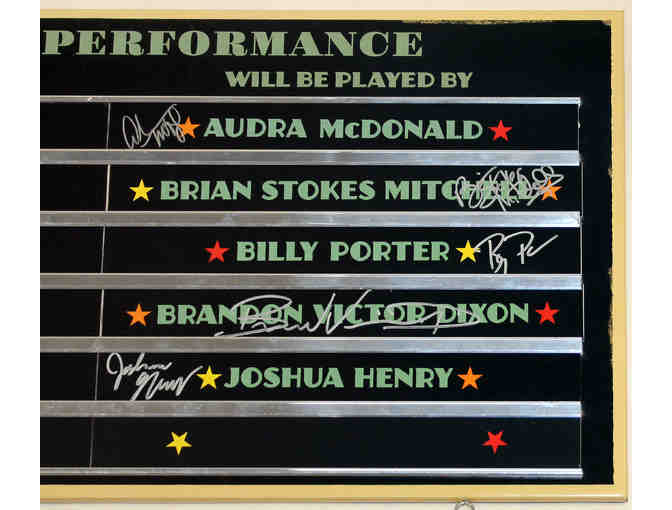 PERFORMANCE
WILL BE PLAYED BY
AUDRA McDONALD
BRIAN STOKES MITCHELL
BILLY PORTER
BRANDON VICTOR DIXON
JOSHUA HENRY